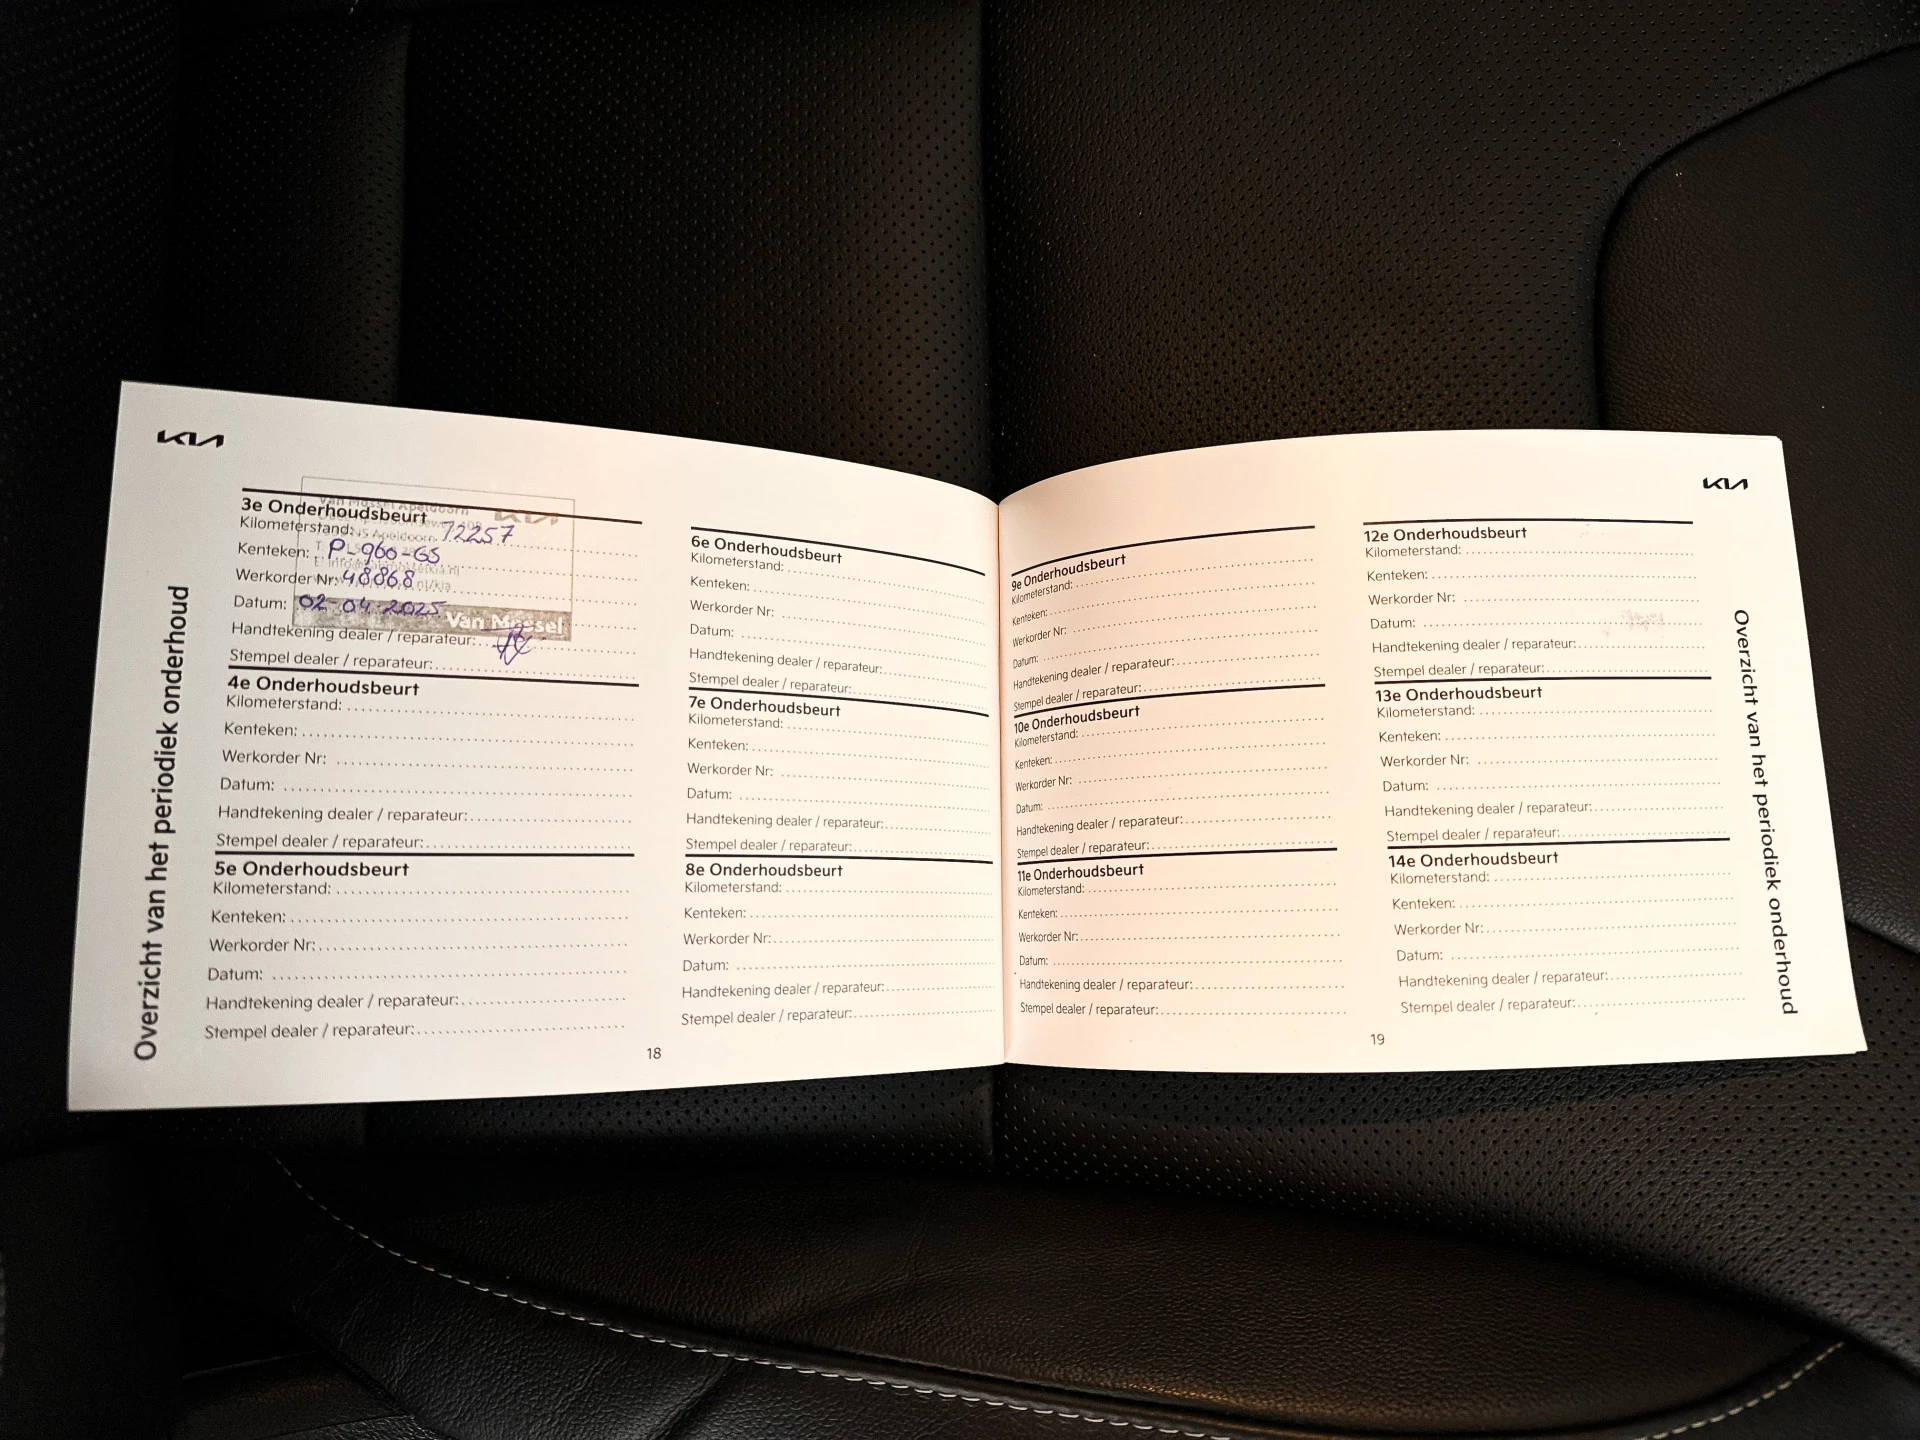 KIA
Overzicht van het periodiek onderhoud
3e Onderhoudsbeurt
Kilometerstand: 72257
Kenteken: P-960-GS
Werkorder Nr: 48868
Datum: 02-04-2025
Handtekening dealer / reparateur:
Stempel dealer / reparateur:
Van Mossel Apeldoorn
KIA
Van Mossel
4e Onderhoudsbeurt
Kilometerstand:
Kenteken:
Werkorder Nr:
Datum:
Handtekening dealer / reparateur:
Stempel dealer / reparateur:
5e Onderhoudsbeurt
Kilometerstand:
Kenteken:
Werkorder Nr:
Datum:
Handtekening dealer / reparateur:
Stempel dealer / reparateur:
6e Onderhoudsbeurt
Kilometerstand:
Kenteken:
Werkorder Nr:
Datum:
Handtekening dealer / reparateur:
Stempel dealer / reparateur:
7e Onderhoudsbeurt
Kilometerstand:
Kenteken:
Werkorder Nr:
Datum:
Handtekening dealer / reparateur:
Stempel dealer / reparateur:
8e Onderhoudsbeurt
Kilometerstand:
Kenteken:
Werkorder Nr:
Datum:
Handtekening dealer / reparateur:
Stempel dealer / reparateur:
18
KIA
9e Onderhoudsbeurt
Kilometerstand:
Kenteken:
Werkorder Nr:
Datum:
Handtekening dealer / reparateur:
Stempel dealer / reparateur:
10e Onderhoudsbeurt
Kilometerstand:
Kenteken:
Werkorder Nr:
Datum:
Handtekening dealer / reparateur:
Stempel dealer / reparateur:
11e Onderhoudsbeurt
Kilometerstand:
Kenteken:
Werkorder Nr:
Datum:
Handtekening dealer / reparateur:
Stempel dealer / reparateur:
12e Onderhoudsbeurt
Kilometerstand:
Kenteken:
Werkorder Nr:
Datum:
Handtekening dealer / reparateur:
Stempel dealer / reparateur:
13e Onderhoudsbeurt
Kilometerstand:
Kenteken:
Werkorder Nr:
Datum:
Handtekening dealer / reparateur:
Stempel dealer / reparateur:
14e Onderhoudsbeurt
Kilometerstand:
Kenteken:
Werkorder Nr:
Datum:
Handtekening dealer / reparateur:
Stempel dealer / reparateur:
19
Overzicht van het periodiek onderhoud